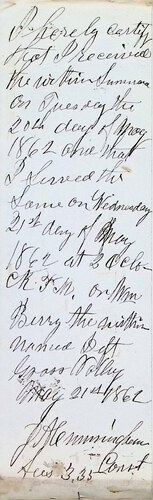 I hereby certify
that I received
the within Summons
on Tuesday the
20th day of May
1862 and that
I served the
same on Wednesday
21st day of May
1862 at 2 Oclo-
ck P.M. on Wm
Berry the within
named Deft
Grass Valley
May 21st 1862
Const
fees 3.35